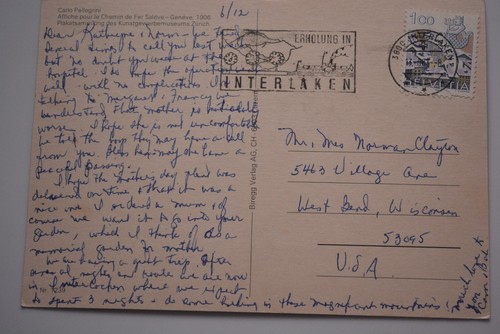 Carlo Pellegrini
Affiche pour le Chemin de Fer Salève – Genève, 1908
Plakatsammlung des Kunstgewerbemuseums Zürich
6/12
Dear Kathryne & Norm – we tried
several times to call you last
but no doubt you were at the
hospital. I do hope the operation
well – with no complications.
talking to Margaret & Francy we
understand that mother is
worse. I hope she is not uncomfortable.
he told the they may have a call
from you. Bless her may she have a
peaceful passing.
I hope the mothers day plant was
delivered on time & that it was a
nice one. I ordered a mum & of
course we want it to go into your
garden, which I think of as a
memorial garden for mother.
We are having a great trip. After
several nights en route we are now
in Interlochen where we expect
to spend 3 nights & do some hiking in these magnificent mountains!
much love to
you
Con & Bob
Nr.
Biregg Verlag AG, CH-
ERHOLUNG IN
INTERLAKEN
3800 INTERLAKEN 1
100
HELVETIA
Mr. & Mrs Norman Clayton
5463 Village Ave
West Bend, Wisconsin
53095
U.S.A.